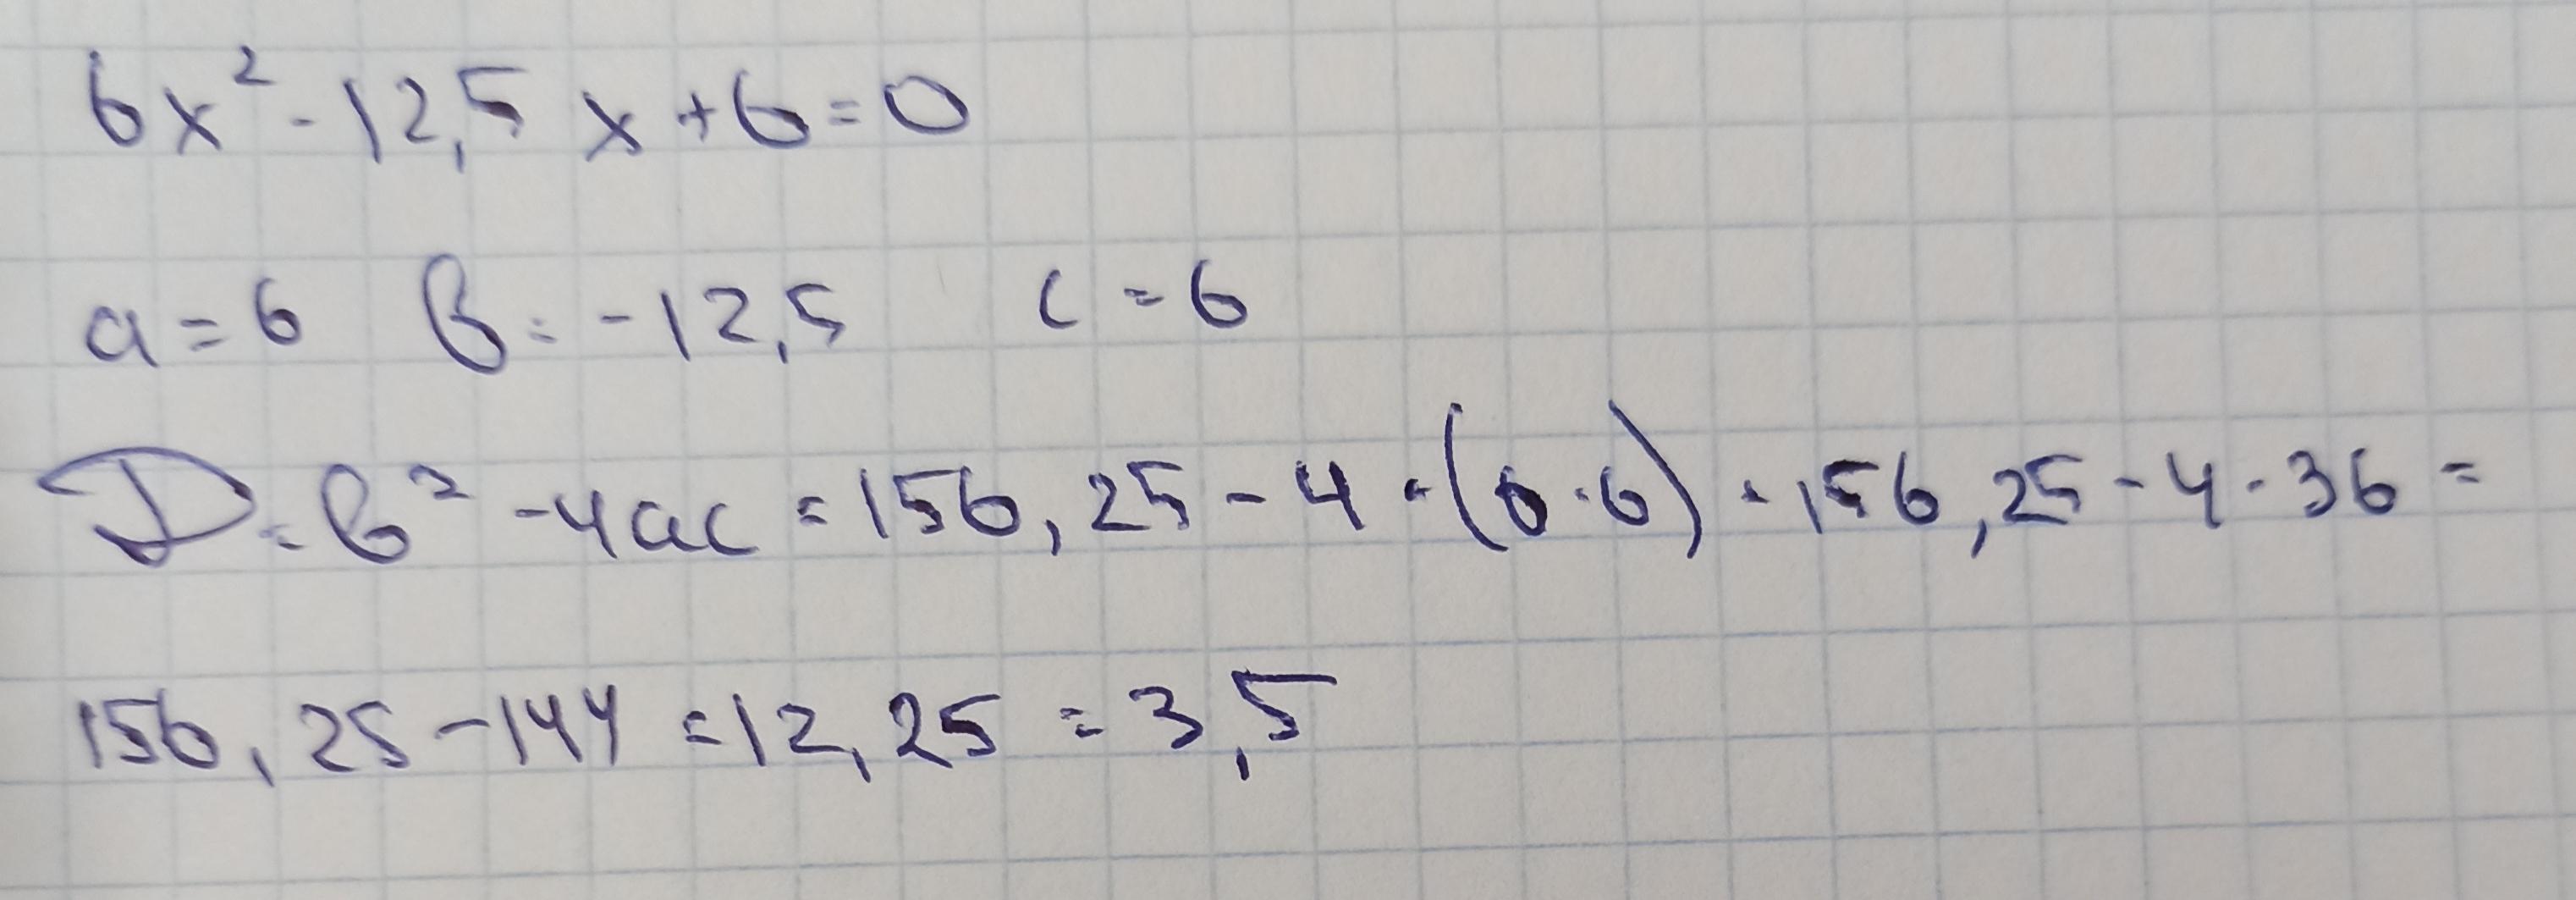 6x² - 12,5 x + 6 = 0
a = 6 в = -12,5 c = 6
D = в² - 4ac = 156,25 - 4 · (6·6) = 156,25 - 4 · 36 =
156,25 - 144 = 12,25 = 3,5